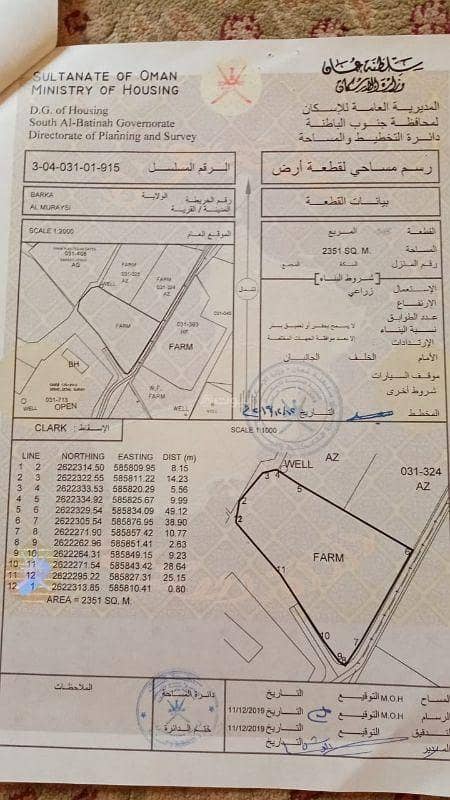 SULTANATE OF OMAN
MINISTRY OF HOUSING
سلطنة عمان
وزارة الإسكان
D.G. of Housing
South Al-Batinah Governorate
Directorate of Planning and Survey
المديرية العامة للإسكان
لمحافظة جنوب الباطنة
دائرة التخطيط والمساحة
3-04-031-01-915
الرقم المسلسل
رسم مساحي لقطعة أرض
BARKA
الولاية
رقم الخريطة
AL MURAYSI
المدينة / القرية
بيانات القطعة
SCALE 1:2000
الموقع العام
القطعة
المربع
2351 SQ. M.
المساحة
رقم المنزل
السكة
المجمع
شروط البناء
الإستعمال
زراعي
الإرتفاع
عدد الطوابق
نسبة البناء
الإرتدادات
الأمام
الخلف
الجانبان
موقف السيارات
شروط أخرى
المخطط
التاريخ
031-408
AG
FARM
031-325
AZ
FARM
031-324
AZ
WELL
FARM
031-383
HF
FARM
BH
W.F.
FARM
WELL
031-713
WELL
OPEN
CLARK :
الإسقاط :
SCALE 1:1000
LINE NORTHING EASTING DIST (m)
1 2 2622314.50 585809.95 8.15
2 3 2622322.55 585811.22 14.23
3 4 2622333.53 585820.29 5.56
4 5 2622334.92 585825.67 9.99
5 6 2622329.54 585834.09 49.12
6 7 2622305.54 585876.95 38.90
7 8 2622271.90 585857.42 10.77
8 9 2622262.96 585851.41 2.63
9 10 2622264.31 585849.15 9.23
10 11 2622271.54 585843.42 28.64
11 12 2622295.22 585827.31 25.15
12 1 2622313.85 585810.41 0.80
AREA = 2351 SQ. M.
WELL
AZ
031-324
AZ
FARM
الملاحظات
دائرة المساحة
ختم الدائرة
التاريخ
التوقيع
M.O.H
المساح
11/12/2019
التاريخ
التوقيع
M.O.H
الرسام
11/12/2019
التاريخ
التوقيع
التدقيق
التاريخ
التوقيع
المدير